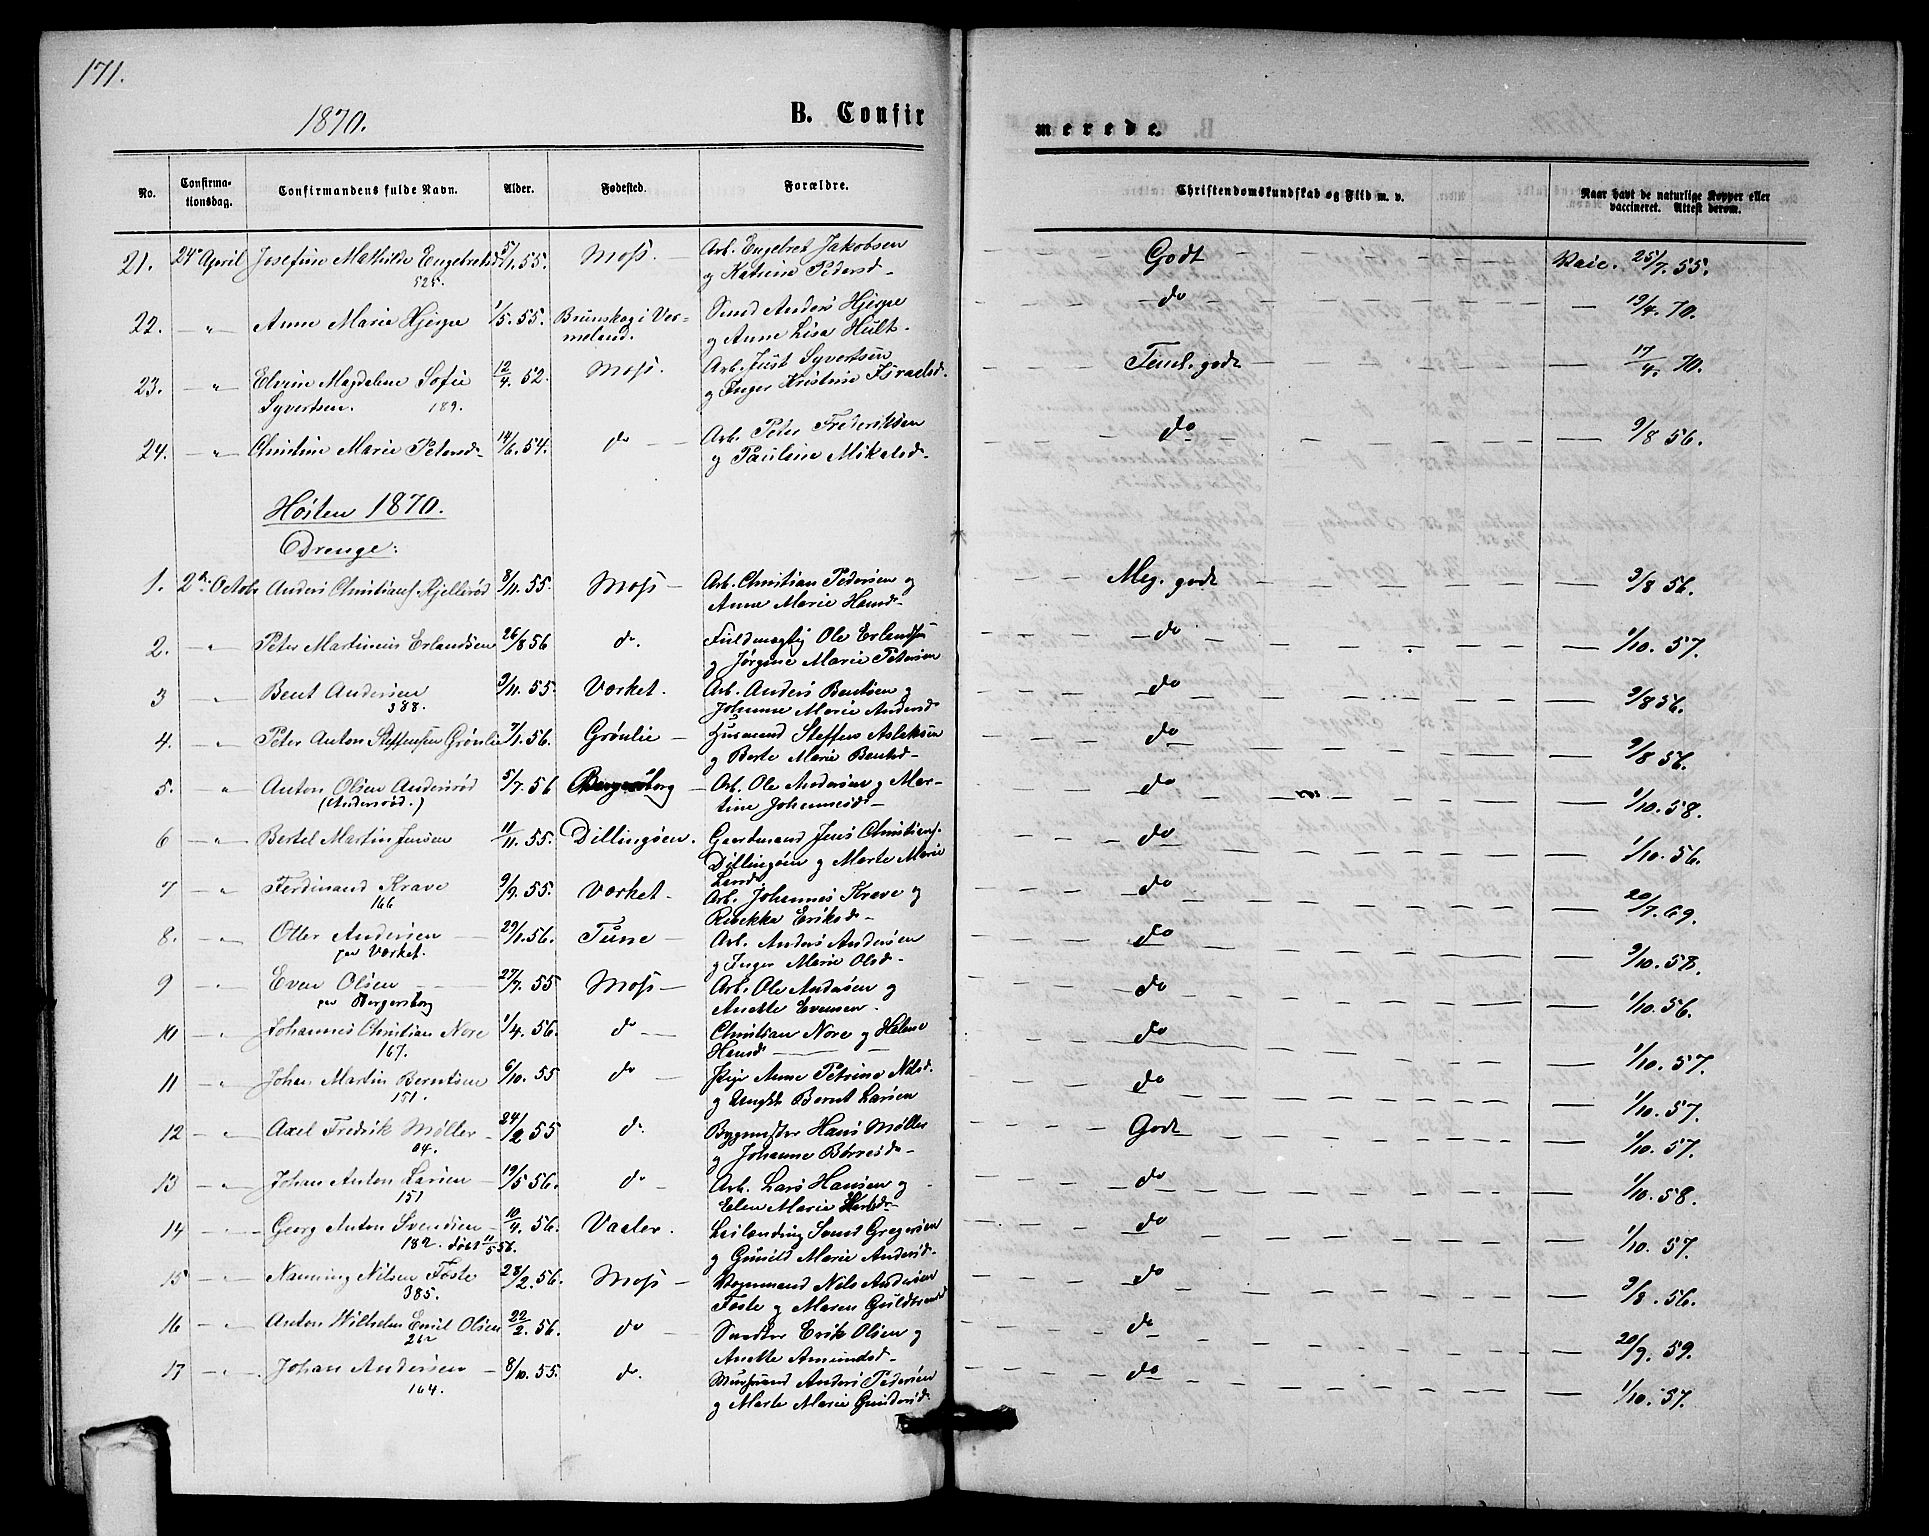 171.
1870.
B. Confirmerede.
No. Confirmationsdag. Confirmandens fulde Navn. Alder. Fødested. Forældre. Christendomskundskab og Flid m. v. Naar havt de naturlige Kopper eller vaccineret. Attest derom.
21. 24de April Josefine Mathilde Engebretsd. 5/1. 55. Moss. Arb. Engebret Jakobsen Godt Vacc. 25/7. 55.
525. og Katrine Pedersd.
22. — " — Anne Marie Hjerpe 1/5. 55. Brunskog i Ver- Smed Anders Hjerpe do 19/4. 70.
meland. og Anne Lisa Hult.
23. — " — Elvine Magdalene Sofie 12/4. 52. Moss. Arb. Just Syvertsen Temel. godt 17/4. 70.
Syvertsen. 189. og Inger Kristine Israelsd.
24. — " — Christine Marie Petersd. 14/6. 54. do Arb. Peter Frederiksen do 9/8 56.
og Pauline Mikalsd.
Høsten 1870.
Drenge:
1. 2den Octob. Anders Christians. Kjellerød 8/11. 55. Moss Arb. Christian Pedersen og Meg. godt 9/8 56.
Anne Marie Hansd.
2. — " — Peter Martinius Erlandsen 26/8 56 do. Fuldmægtig Ole Erlands. do 1/10. 57.
og Jørgine Marie Petersen
3 — " — Bent Andersen 3/11. 55. Værket. Arb. Anders Bentsen og do 9/8 56.
388. Johanne Marie Andersd.
4. — " — Peter Anton Steffensen Grønlie 7/1. 56. Grønlie Husmand Steffen Aslaksen do 9/8 56.
og Berte Marie Bentsd.
5. — " — Anton Olsen Andersrød 5/7. 56 Bergersborg Arb. Ole Andersen og Mar- do 1/10. 58.
(Andersrød.) tine Johannesd.
6 — " — Bertel Martin Jensen 11/11. 55. Dillingøen. Gaardmand Jens Christians. do 1/10. 56.
Dillingøen og Marte Marie
Larsd.
7 — " — Ferdinand Krave 9/9. 55. Værket. Arb. Johannes Krave og do 20/7. 69.
166 Rebekka Eriksd.
8. — " — Otter Andersen 29/1. 56. Tune Arb. Anders Andersen do 9/10. 58.
per Værket. og Inger Marie Olsd.
9 — " — Even Olsen 27/7. 55 Moss Arb. Ole Andersen og do 1/10. 56.
per Bergersborg Anette Evensen.
10 — " — Johannes Christian Nore 1/4. 56. do Christian Nore og Helene do 1/10. 57.
167. Hansd.
11 — " — Johan Martin Berntsen 6/10. 55 do Pige Anne Petrine Nilsd. do 1/10. 57.
151. og Ungk. Bernt Larsen
12 — " — Axel Fredrik Møller 24/2 55 do. Bygmester Hans Møller Godt 1/10. 57.
64. og Johanne Børresd.
13 — " — Johan Anton Larsen 19/5 56. do Arb. Lars Hansen og do 1/10. 58.
151 Elen Marie
14 — " — Georg Anton Svendsen 10/4. 56. Vaaler. Leilænding Svend Gregersen do 1/10. 57.
182. døbt 11/5 56. og Gunild Marie Andersd.
15 — " — Nanning Nilsen Foste 28/2. 56. Moss Vognmand Nils Andersen do 9/8. 56.
385. Foste og Maren Guldbrandsd.
16 — " — Anton Wilhelm Emil Olsen 22/2. 56. do Snedker Erik Olsen og do 20/9. 59.
Anette Amundsd.
17 — " — Johan Andersen 8/10. 55. do. Anders Pedersen do 1/10. 57.
164. og Marte Marie Gundersd.